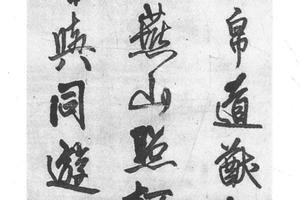 帛道猷
燕山照
與同遊